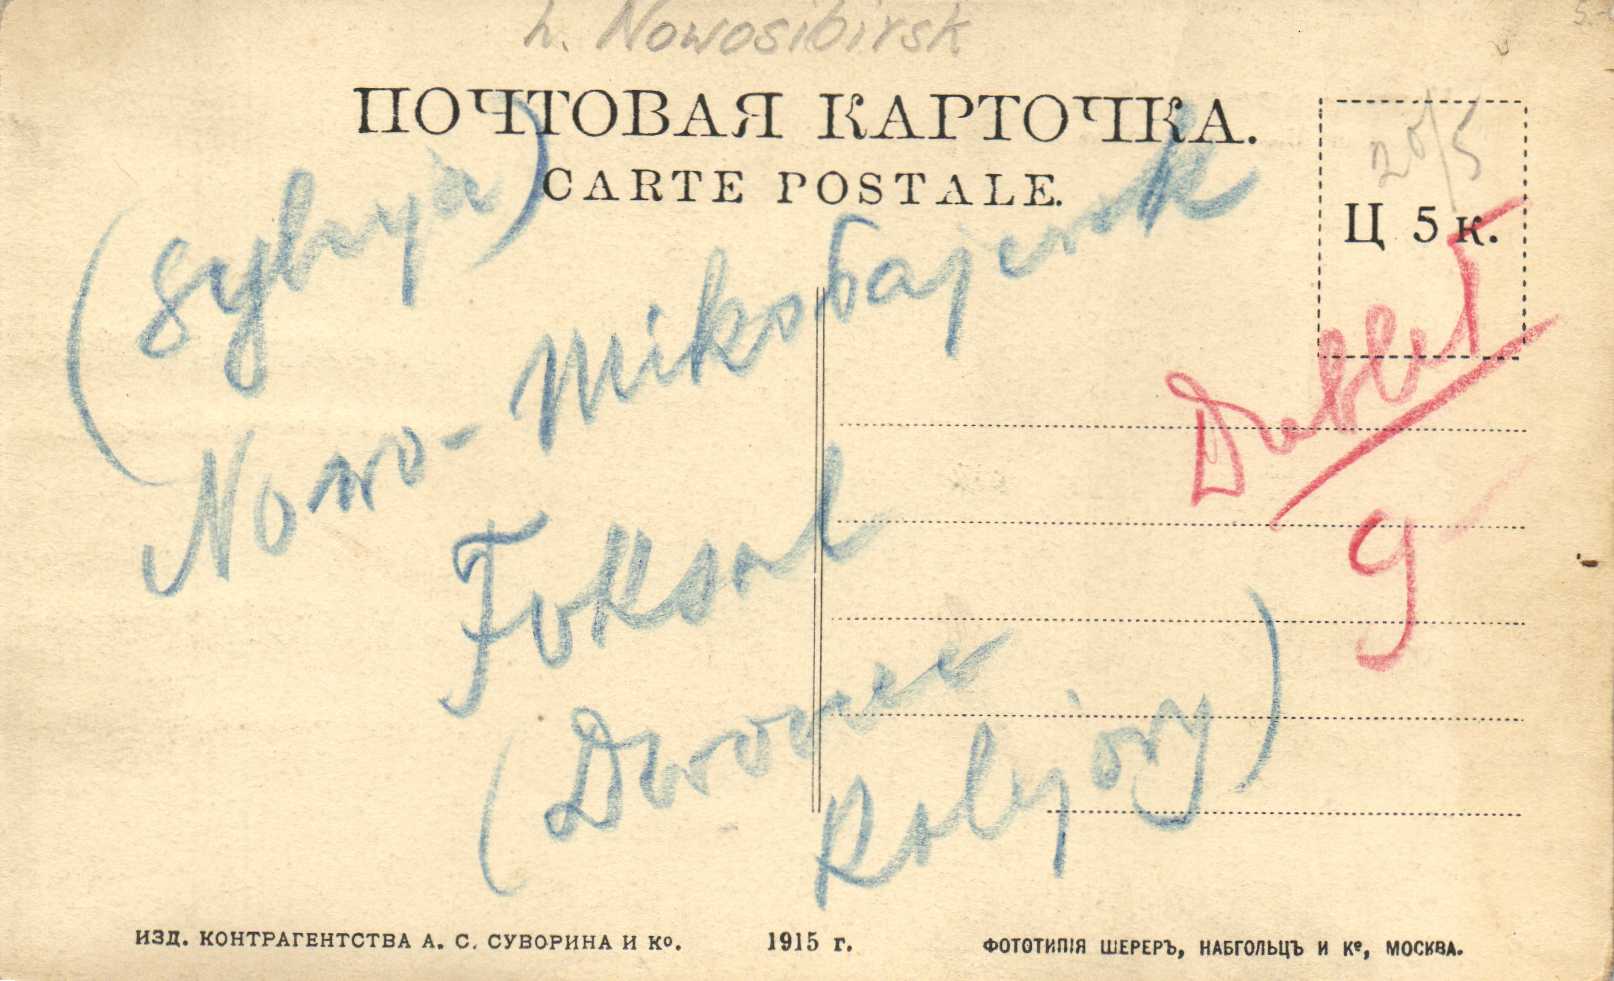 h. Nowosibirsk
ПОЧТОВАЯ КАРТОЧКА.
CARTE POSTALE.
20/5
Ц 5 к.
(Sybrya)
Nowo-Mikołajewsk
Foksal
(Dworzec
Kolejowy)
Dublet
9
ИЗД. КОНТРАГЕНТСТВА А. С. СУВОРИНА И Ко.
1915 г.
ФОТОТИПІЯ ШЕРЕРЪ, НАБГОЛЬЦЪ И Кº, МОСКВА.